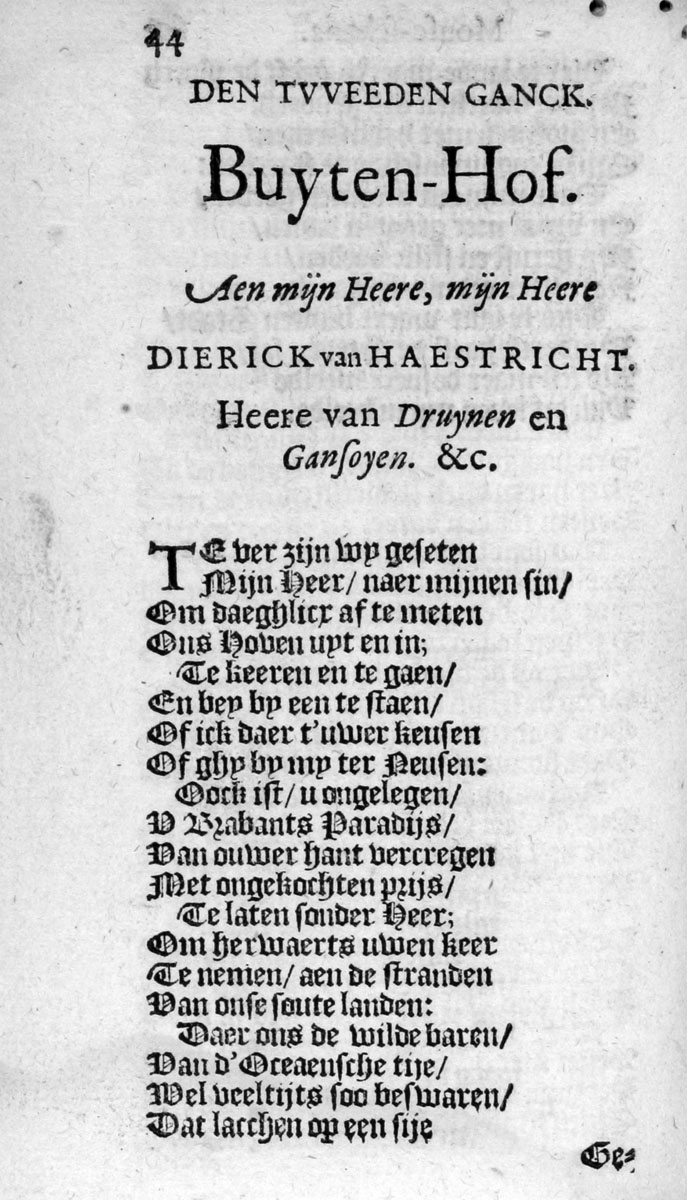 44
DEN TVVEEDEN GANCK.
Buyten-Hof.
Aen mijn Heere, mijn Heere
DIERICK van HAESTRICHT.
Heere van Druynen en
Ganſoyen. &c.
TE ver zijn wy geſeten
Mijn Heer/ naer mijnen ſin/
Om daeghlicx af te meten
Ons Hoven uyt en in;
Te keeren en te gaen/
En bey by een te ſtaen/
Of ick daer t'uwer keuſen
Of ghy by my ter Neuſen:
Oock iſt/ u ongelegen/
V Brabants Paradijs/
Van ouwer hant vercregen
Met ongekochten prijs/
Te laten ſonder Heer;
Om herwaerts uwen keer
Te nemen/ aen de ſtranden
Van onſe ſoute landen:
Daer ons de wilde baren/
Van d'Oceaenſche tije/
Wel veeltijts ſoo beswaren/
Dat lacchen op een ſije
Ge-